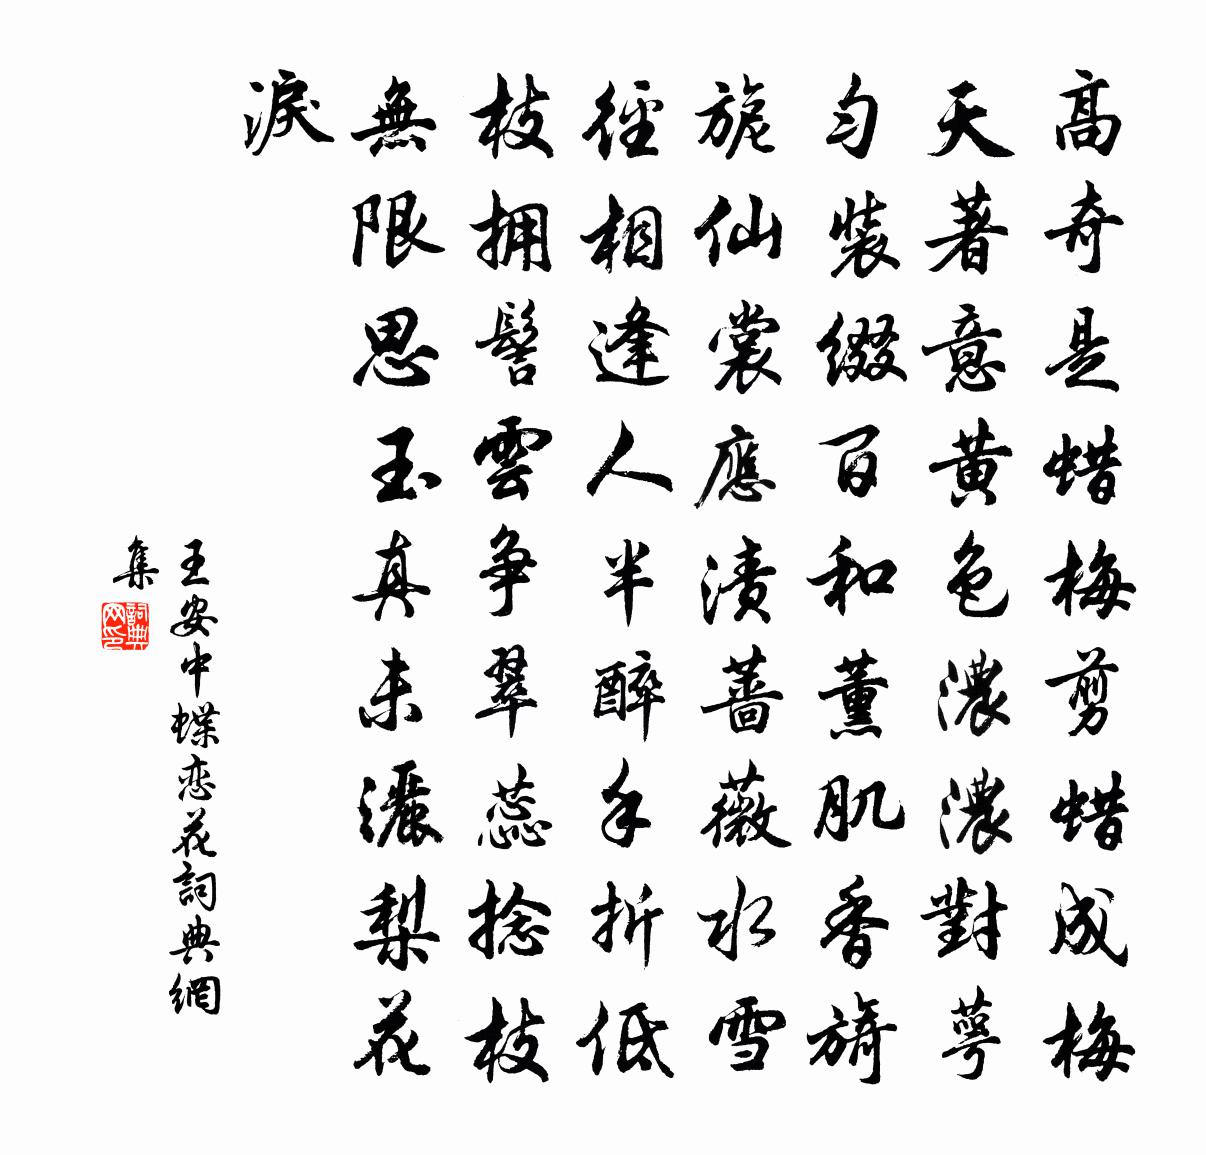 高奇是蜡梅剪蜡成梅
天著意黄色濃濃對萼
勻裝綴百和薰肌香旖
旎仙裳應漬薔薇水雪
徑相逢人半醉手折低
枝拥髻雲争翠蕊捻枝
無限思玉真未灑梨花
淚
王安中蝶恋花詞典網
集
詞典
网印